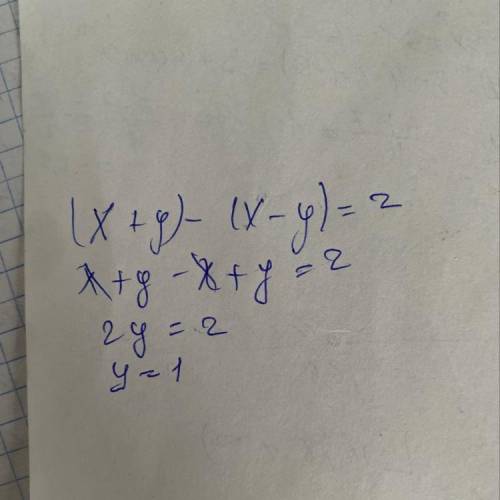 (x + y) - (x - y) = 2
x + y - x + y = 2
2y = 2
y = 1